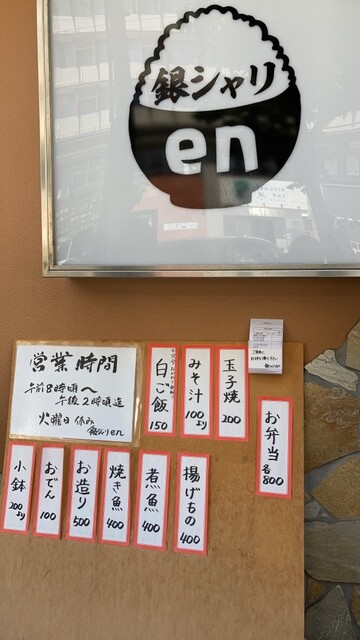 銀シャリ
en
営業時間
午前8時頃〜
午後2時頃迄
火曜日休み
銀シャリen
玉子焼
200
みそ汁
100より
白ご飯
150
お弁当
各800
揚げもの
400
煮魚
400
焼き魚
400
お造り
500
おでん
100
小鉢
200より